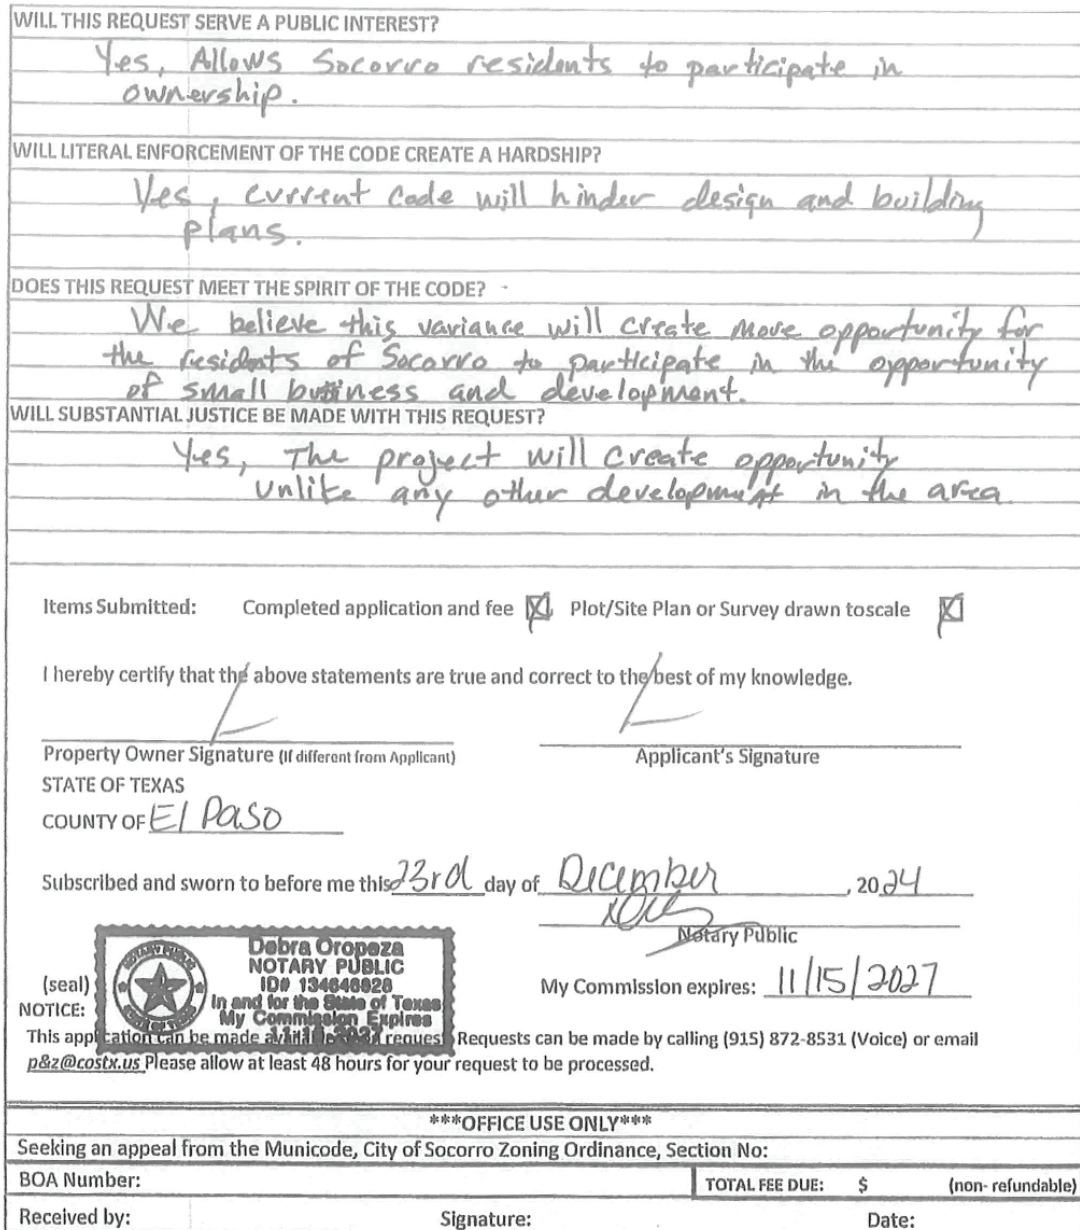 WILL THIS REQUEST SERVE A PUBLIC INTEREST?
Yes, Allows Socorro residents to participate in
ownership.
WILL LITERAL ENFORCEMENT OF THE CODE CREATE A HARDSHIP?
Yes, current code will hinder design and building
plans.
DOES THIS REQUEST MEET THE SPIRIT OF THE CODE?
We believe this variance will create more opportunity for
the residents of Socorro to participate in the opportunity
of small business and development.
WILL SUBSTANTIAL JUSTICE BE MADE WITH THIS REQUEST?
Yes, The project will create opportunity
unlike any other development in the area
Items Submitted: Completed application and fee Plot/Site Plan or Survey drawn toscale
I hereby certify that the above statements are true and correct to the best of my knowledge.
Property Owner Signature (If different from Applicant) Applicant's Signature
STATE OF TEXAS
COUNTY OF El Paso
Subscribed and sworn to before me this 23rd day of December, 2024
Notary Public
Debra Oropeza
NOTARY PUBLIC
ID# 134646828
In and for the State of Texas
My Commission Expires
(seal) My Commission expires: 11/15/2027
NOTICE:
This application can be made request Requests can be made by calling (915) 872-8531 (Voice) or email
p&z@costx.us Please allow at least 48 hours for your request to be processed.
***OFFICE USE ONLY***
Seeking an appeal from the Municode, City of Socorro Zoning Ordinance, Section No:
BOA Number: TOTAL FEE DUE: $ (non- refundable)
Received by: Signature: Date: